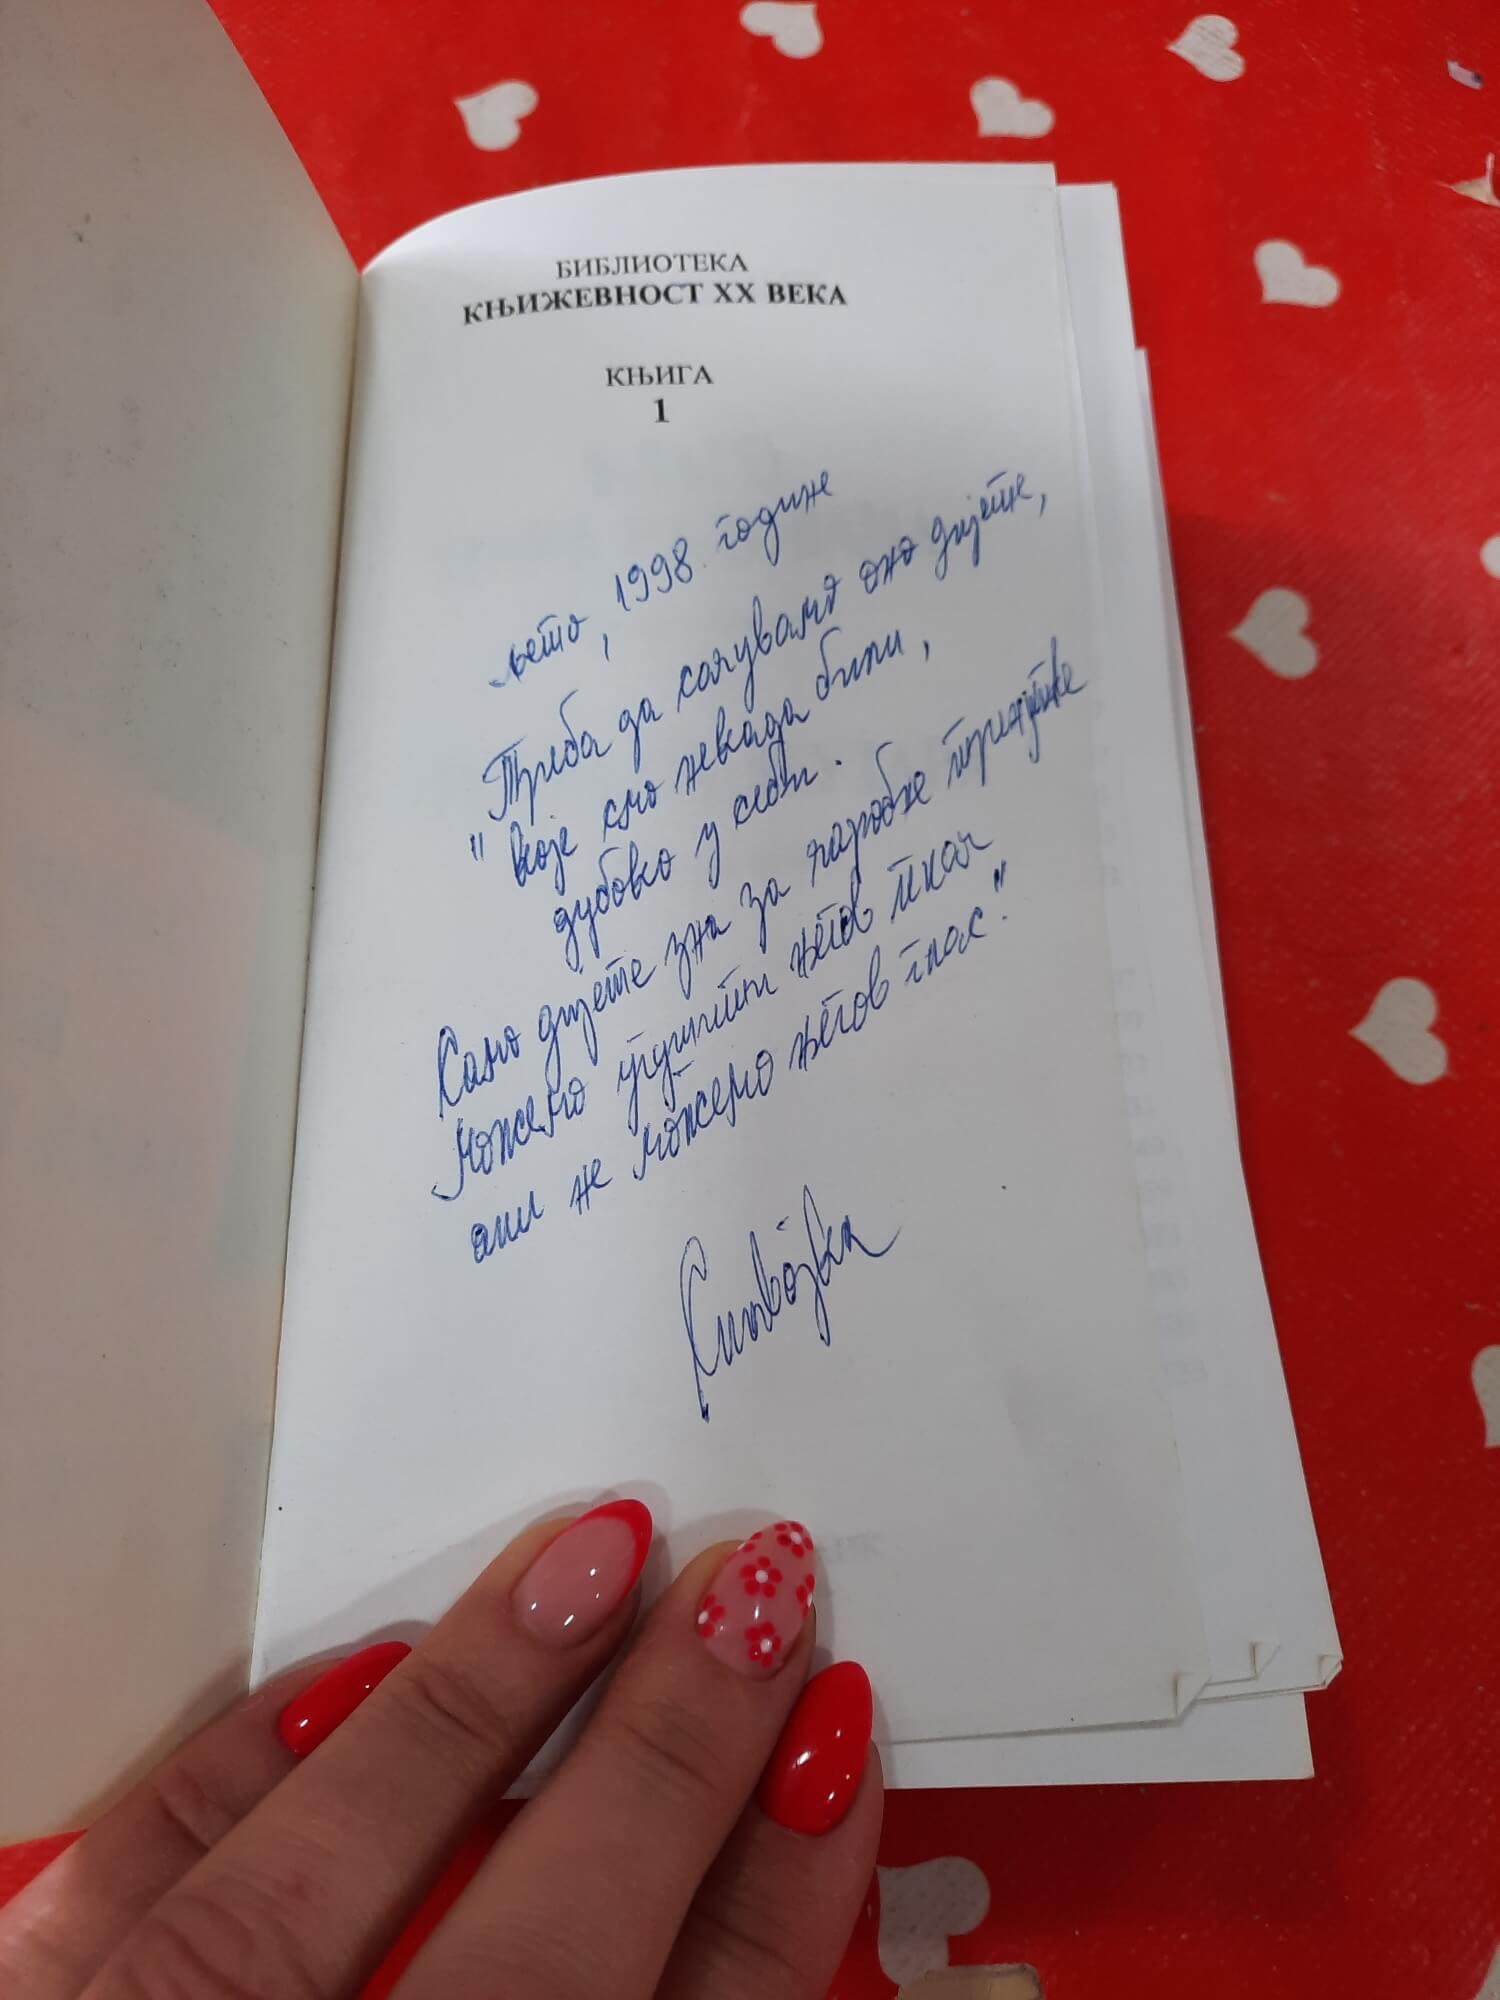 БИБЛИОТЕКА
КЊИЖЕВНОСТ XX ВЕКА
КЊИГА
1
љето, 1998. године
"Треба да сачувамо оно дијете,
које смо некада били,
дубоко у себи.
Само дијете зна за чаробне тренутке
можемо угушити његов плач
али не можемо његов глас."